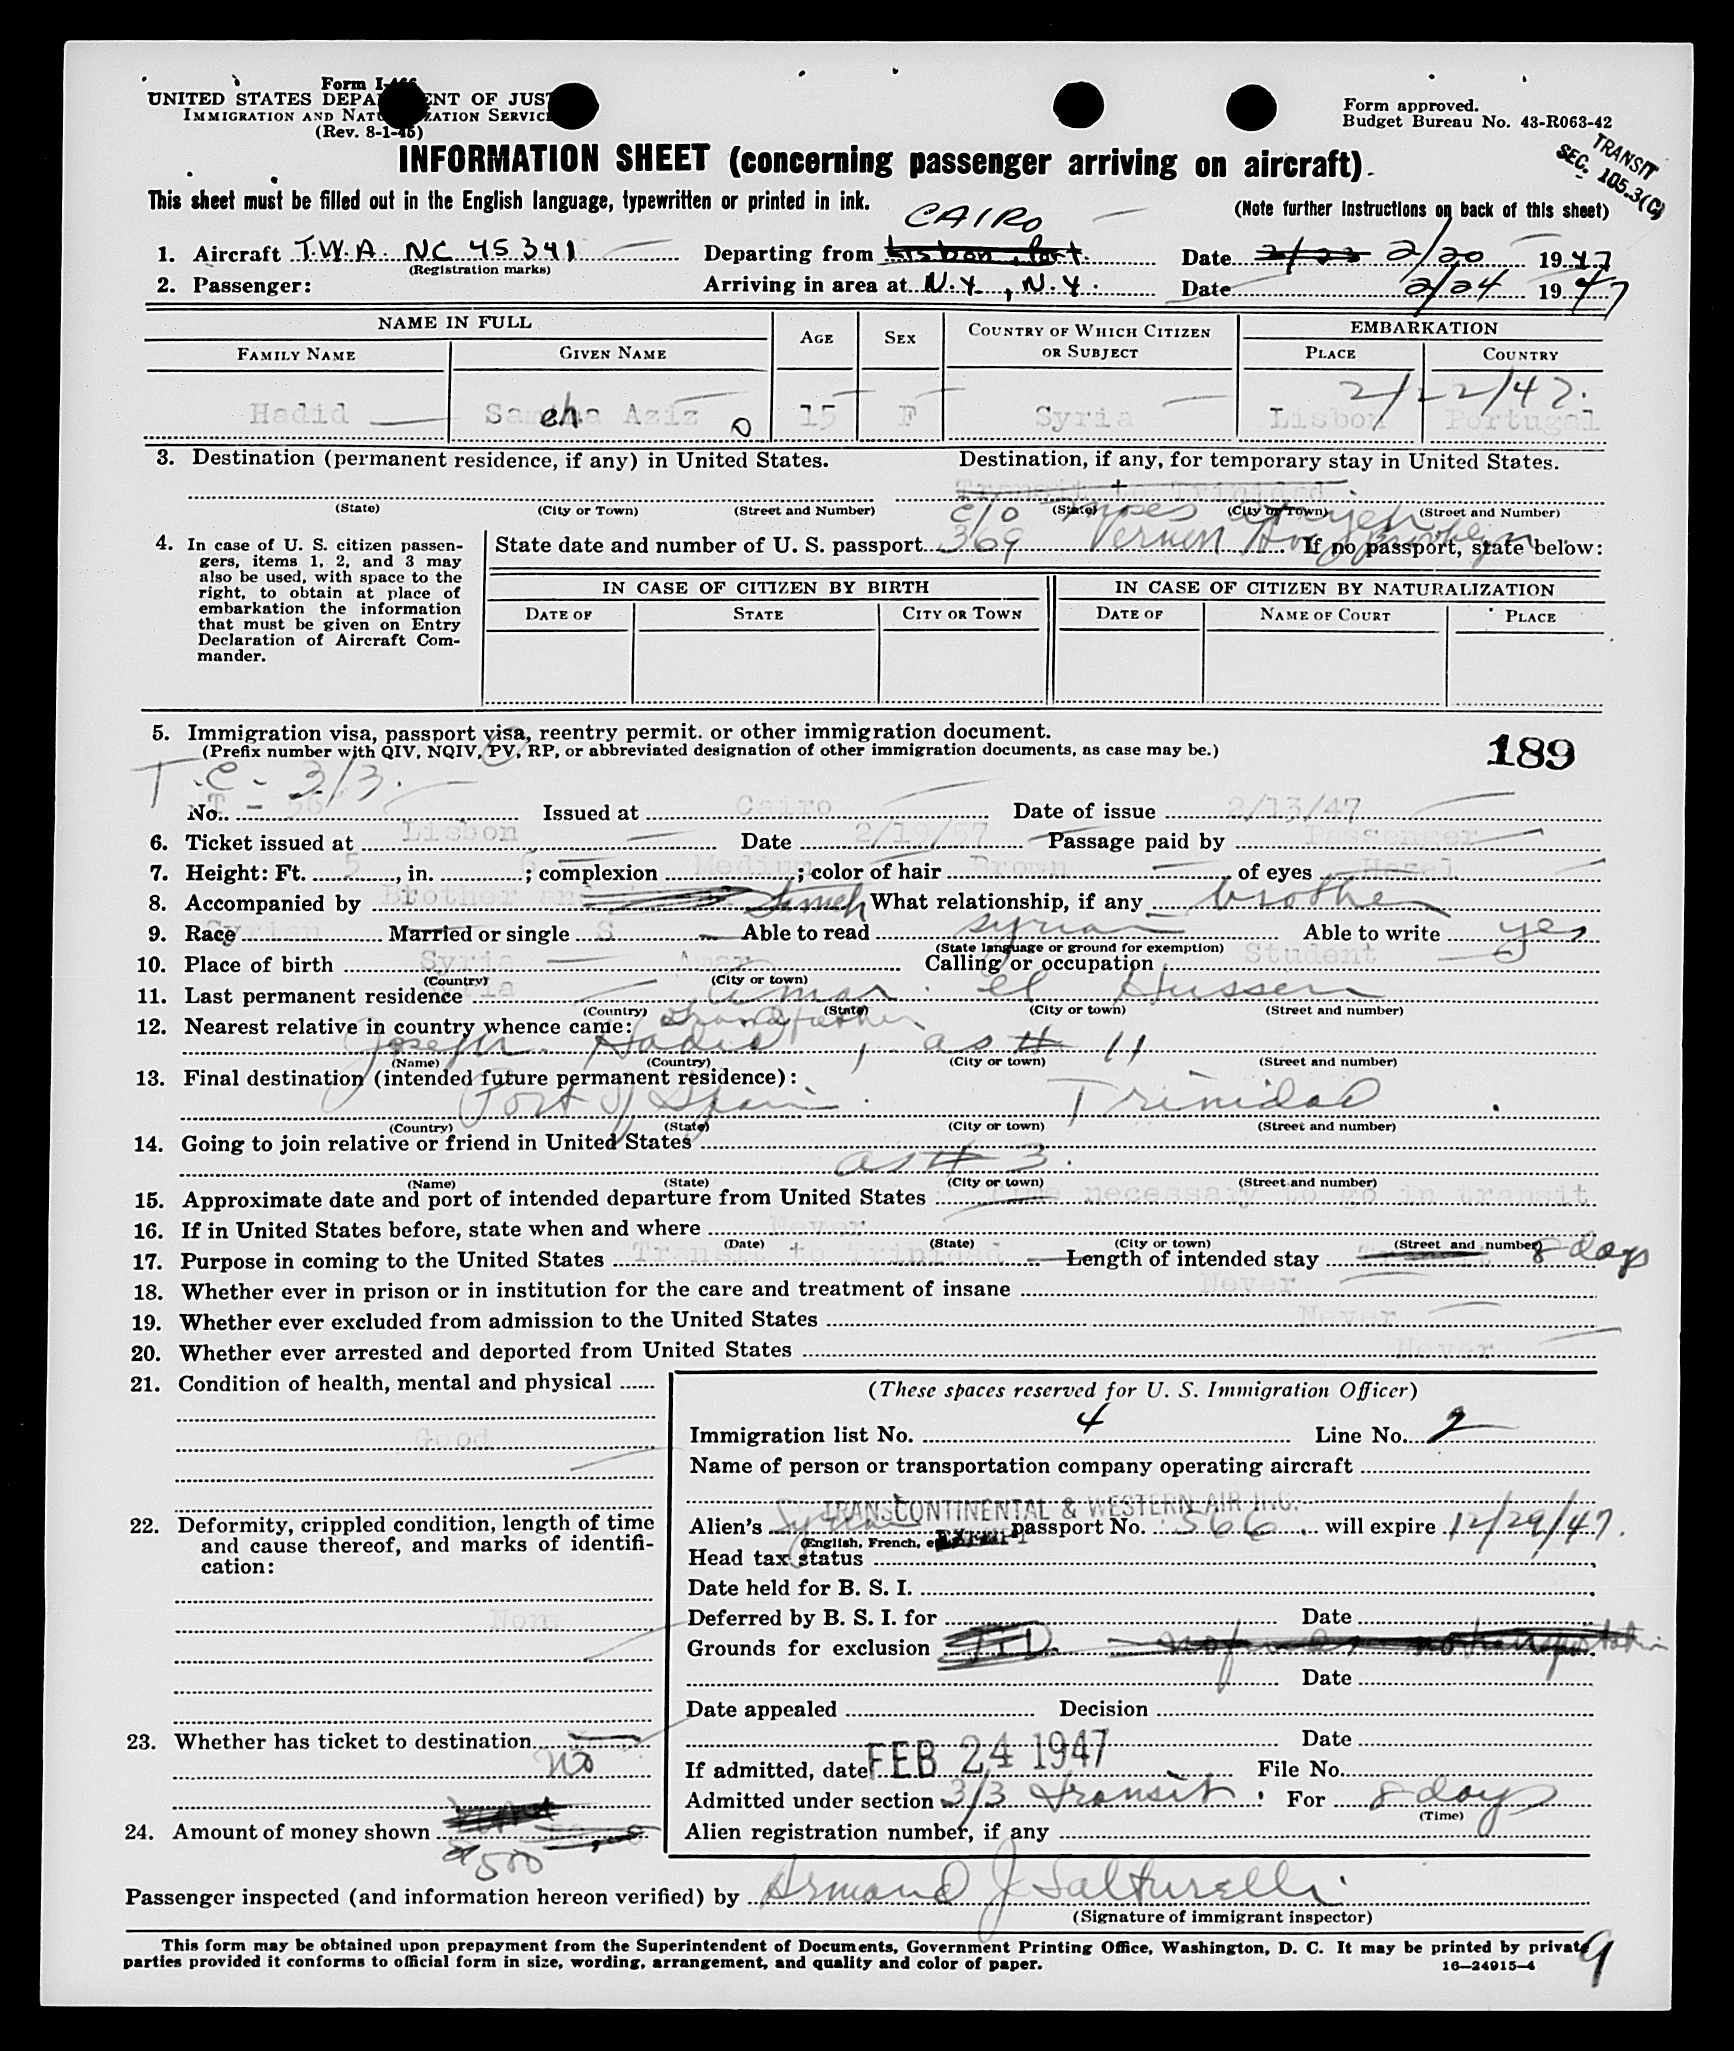 Form I-466
UNITED STATES DEPARTMENT OF JUSTICE
IMMIGRATION AND NATURALIZATION SERVICE
(Rev. 8-1-45)
Form approved.
Budget Bureau No. 43-R063-42
TRANSIT
SEC. 105.3(C)
INFORMATION SHEET (concerning passenger arriving on aircraft)
This sheet must be filled out in the English language, typewritten or printed in ink.
(Note further instructions on back of this sheet)
CAIRO
1. Aircraft T.W.A. NC 45341 Departing from Lisbon, Port. Date 2/23 2/20 1947
(Registration marks)
2. Passenger: Arriving in area at N.Y., N.Y. Date 2/24 1947
NAME IN FULL AGE SEX COUNTRY OF WHICH CITIZEN OR SUBJECT EMBARKATION
FAMILY NAME GIVEN NAME PLACE COUNTRY
2/22/47.
Hadid Aziz 15 F Syria Lisbon Portugal
3. Destination (permanent residence, if any) in United States. Destination, if any, for temporary stay in United States.
Transit to Trinidad
(State) (City or Town) (Street and Number) (State) (City or Town) (Street and Number)
c/o Moses
4. In case of U. S. citizen passengers, items 1, 2, and 3 may also be used, with space to the right, to obtain at place of embarkation the information that must be given on Entry Declaration of Aircraft Commander.
State date and number of U. S. passport 369 Vernon Ave Brooklyn If no passport, state below:
IN CASE OF CITIZEN BY BIRTH IN CASE OF CITIZEN BY NATURALIZATION
DATE OF STATE CITY OR TOWN DATE OF NAME OF COURT PLACE
5. Immigration visa, passport visa, reentry permit, or other immigration document.
(Prefix number with QIV, NQIV, PV, RP, or abbreviated designation of other immigration documents, as case may be.)
189
T.C. - 3/3.
No. T - 56 Issued at Cairo Date of issue 2/13/47
6. Ticket issued at Lisbon Date 2/19/47 Passage paid by Passenger
7. Height: Ft. 5, in. 6; complexion Medium; color of hair Brown of eyes Hazel
8. Accompanied by Brother and What relationship, if any brother
9. Race Syrian Married or single S Able to read syrian Able to write yes
(State language or ground for exemption)
10. Place of birth Syria Amar Calling or occupation Student
(Country) (City or town)
11. Last permanent residence Syria Amar el Hussen
(Country) (State) (City or town) (Street and number)
12. Nearest relative in country whence came: Grandfather
Joseph Hadid, as # 11
(Name) (Country) (City or town) (Street and number)
13. Final destination (intended future permanent residence):
Port of Spain Trinidad
(Country) (State) (City or town) (Street and number)
14. Going to join relative or friend in United States
as # 3.
(Name) (State) (City or town) (Street and number)
15. Approximate date and port of intended departure from United States Time necessary to go in transit
16. If in United States before, state when and where Never
(Date) (State) (City or town) (Street and number)
17. Purpose in coming to the United States Transit to Trinidad Length of intended stay 8 days
18. Whether ever in prison or in institution for the care and treatment of insane Never
19. Whether ever excluded from admission to the United States Never
20. Whether ever arrested and deported from United States Never
21. Condition of health, mental and physical
Good
22. Deformity, crippled condition, length of time and cause thereof, and marks of identification:
Non
23. Whether has ticket to destination
no
24. Amount of money shown
$500
(These spaces reserved for U. S. Immigration Officer)
Immigration list No. 4 Line No. 2
Name of person or transportation company operating aircraft
TRANSCONTINENTAL & WESTERN AIR INC.
Alien's Syrian passport No. 566 will expire 12/29/47.
(English, French, etc.) EXEMPT
Head tax status
Date held for B. S. I.
Deferred by B. S. I. for Date
Grounds for exclusion T.D. - no funds no transportation
Date
Date appealed Decision
Date
If admitted, date FEB 24 1947 File No.
Admitted under section 3/3 transit. For 8 days
(Time)
Alien registration number, if any
Passenger inspected (and information hereon verified) by Armand J Salturelli
(Signature of immigrant inspector)
This form may be obtained upon prepayment from the Superintendent of Documents, Government Printing Office, Washington, D. C. It may be printed by private
parties provided it conforms to official form in size, wording, arrangement, and quality and color of paper.
16—24915-4
9